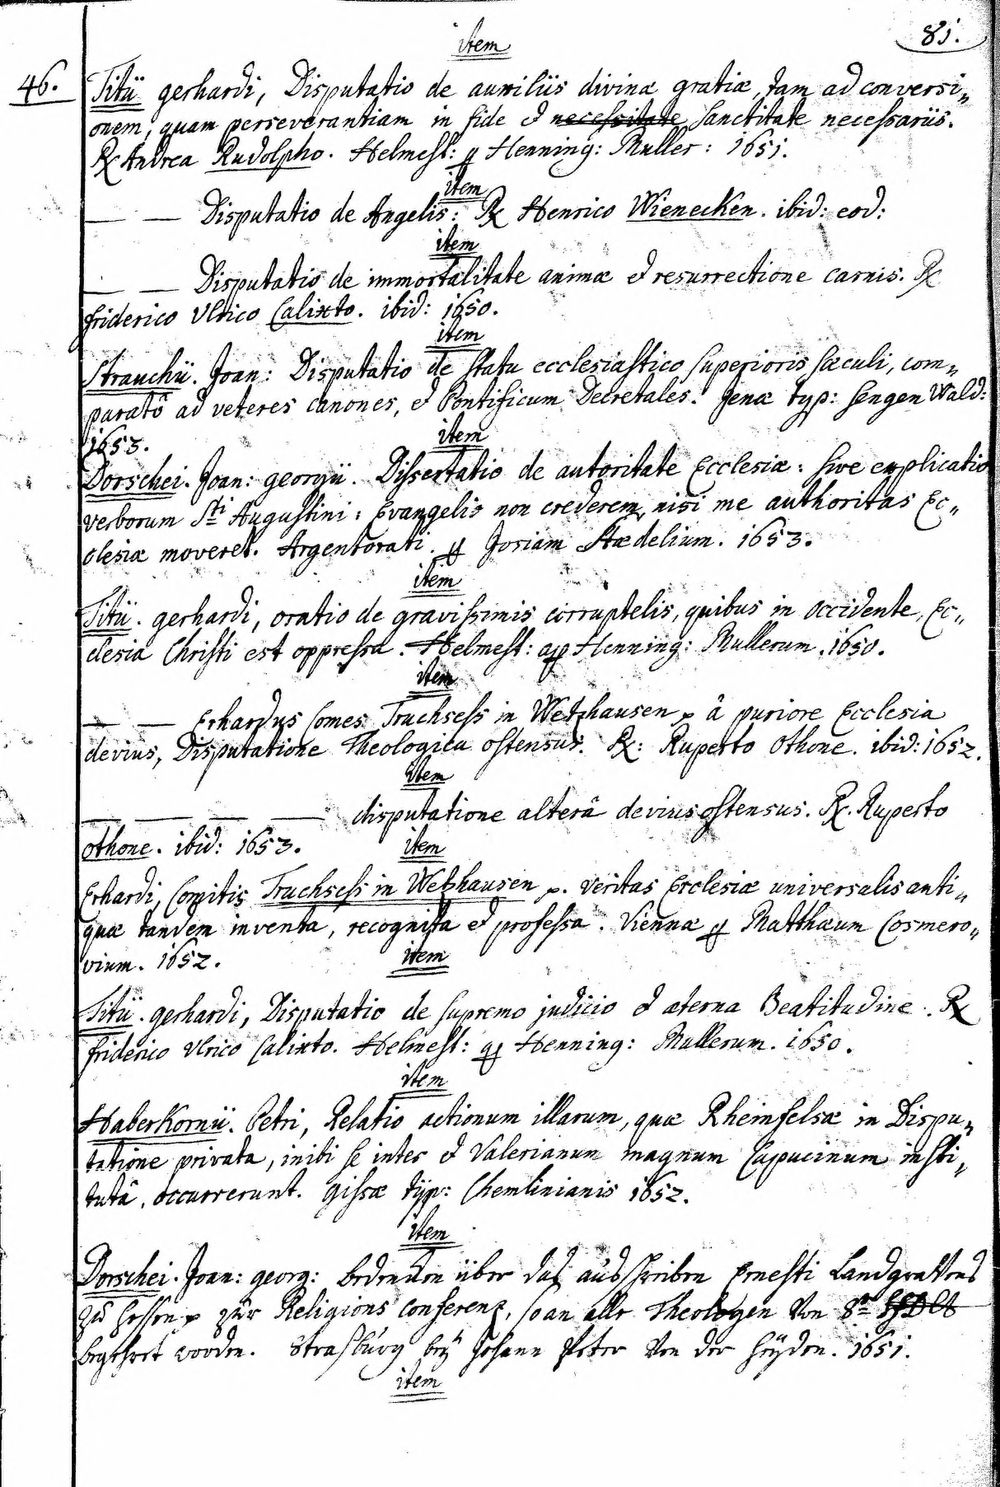 item
81.
46.
Titii gerhardi, Disputatio de auxiliis divinæ gratiæ, tam ad conversi„
onem, quam perseverantiam in fide et necessitate sanctitate necessariis.
Rx Andrea Rudolpho. Helmest: Henning: Muller: 1651.
item
— — Disputatio de Angelis: Rx Henrico Wienecken. ibid: eod:
item
— — Disputatio de immortalitate animæ et resurrectione carnis. Rx
friderico Ulrico Calixto. ibid: 1650.
item
Strauchii. Joan: Disputatio de statu ecclesiastico superioris sæculi, com„
paratô ad veteres canones, et Pontificum Decretales. Jenæ typ: Sengen Wald:
1653.
item
Dorschei. Joan: georgii. Dissertatio de autoritate Ecclesiæ: sive explicatio
verborum Sti Augustini: Evangelio non crederem, nisi me authoritas Ec„
clesiæ moveret. Argentorati. Josiam Stædelium. 1653.
item
Titii. gerhardi, oratio de gravissimis corruptelis, quibus in occidente, Ec„
clesia Christi est oppressa. Helmest: Henning: Mullerum. 1650.
item
— — Erhardus Comes Truchsess in Wetzhausen â puriore Ecclesia
devius, Disputatione Theologica ostensus. Rx: Ruperto Othone. ibid: 1652.
item
— — — — disputatione alterâ devius ostensus. Rx. Ruperto
Othone. ibid: 1653.
item
Erhardi, Comitis Truchsess in Wetzhausen p. veritas Ecclesiæ universalis anti„
quæ tandem inventa, recognita et professa. Viennæ Matthæum Cosmero„
vium. 1652.
item
Titii. gerhardi, Disputatio de supremo judicio et æterna Beatitudine. Rx
friderico Ulrico Calixto. Helmest: Henning: Mullerum. 1650.
item
Haberkornii. Petri, Relatio actionum illarum, quæ Rheinfelsæ in Dispu„
tatione privata, inibi se inter et Valerianum magnum Capucinum insti„
tutâ, occurrerunt. gissæ typ: Chemlinianis 1652.
item
Dorschei. Joan: georg: bedencken über das ausschreiben Ernesti Landgravens
zu Hessen zur Religions conferenz, so an alle Theologen von
begehrt worden. Strasburg bey Johann Peter von der Heyden. 1651.
item